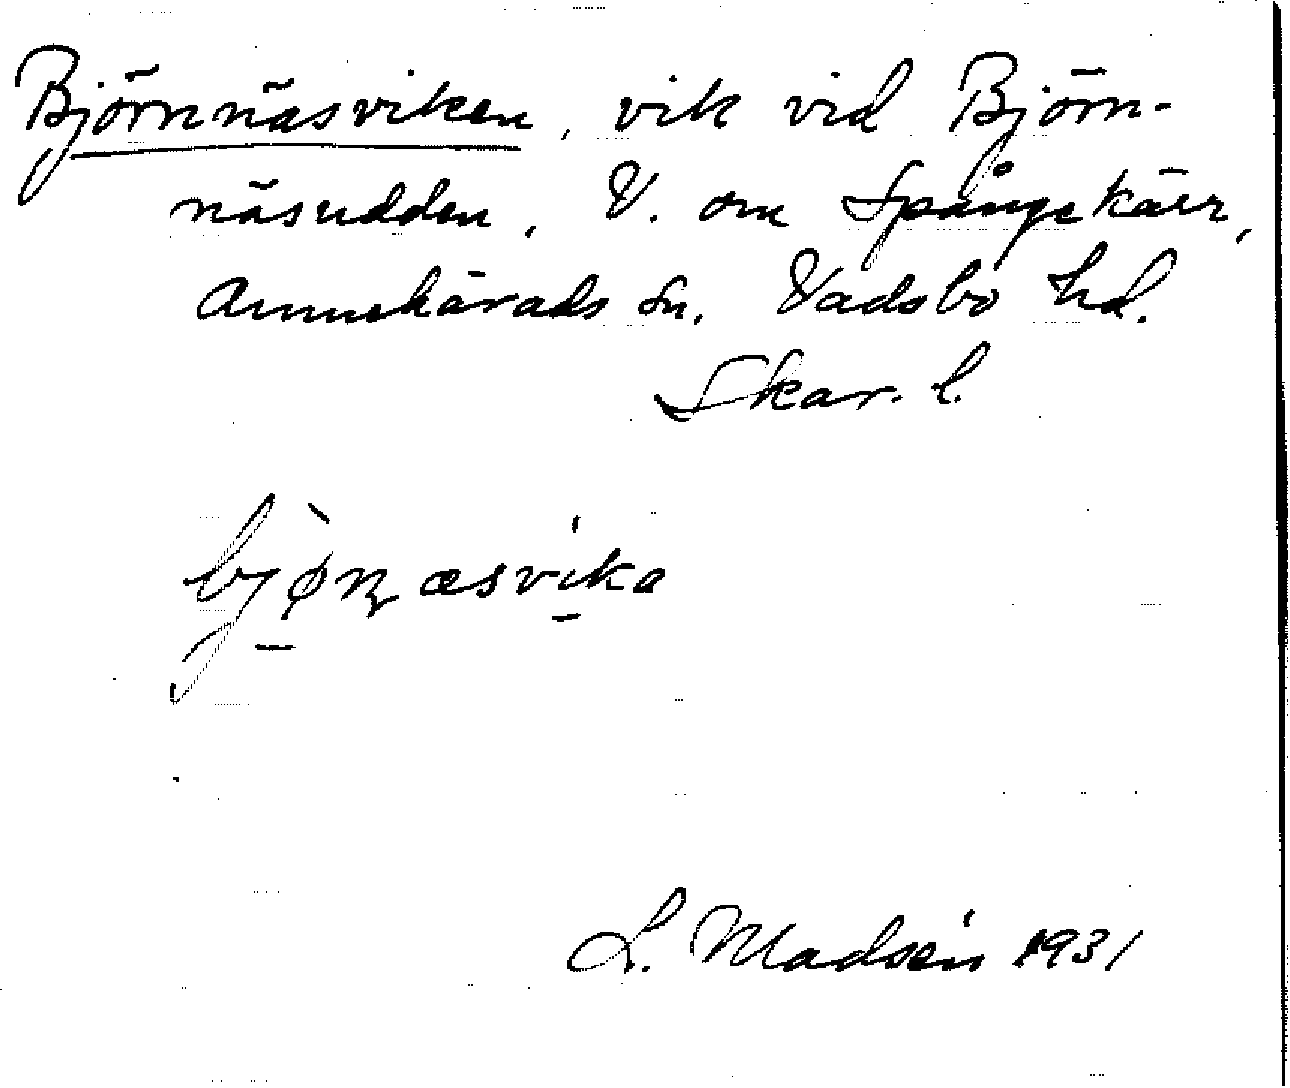 Björnnäsviken, vik vid Björn-
näsudden, V. om Spångekärr,
Amnehärads sn. Vadsbo hd.
Skar. l.
bjø̀ɳæsvika
L. Madsén 1931